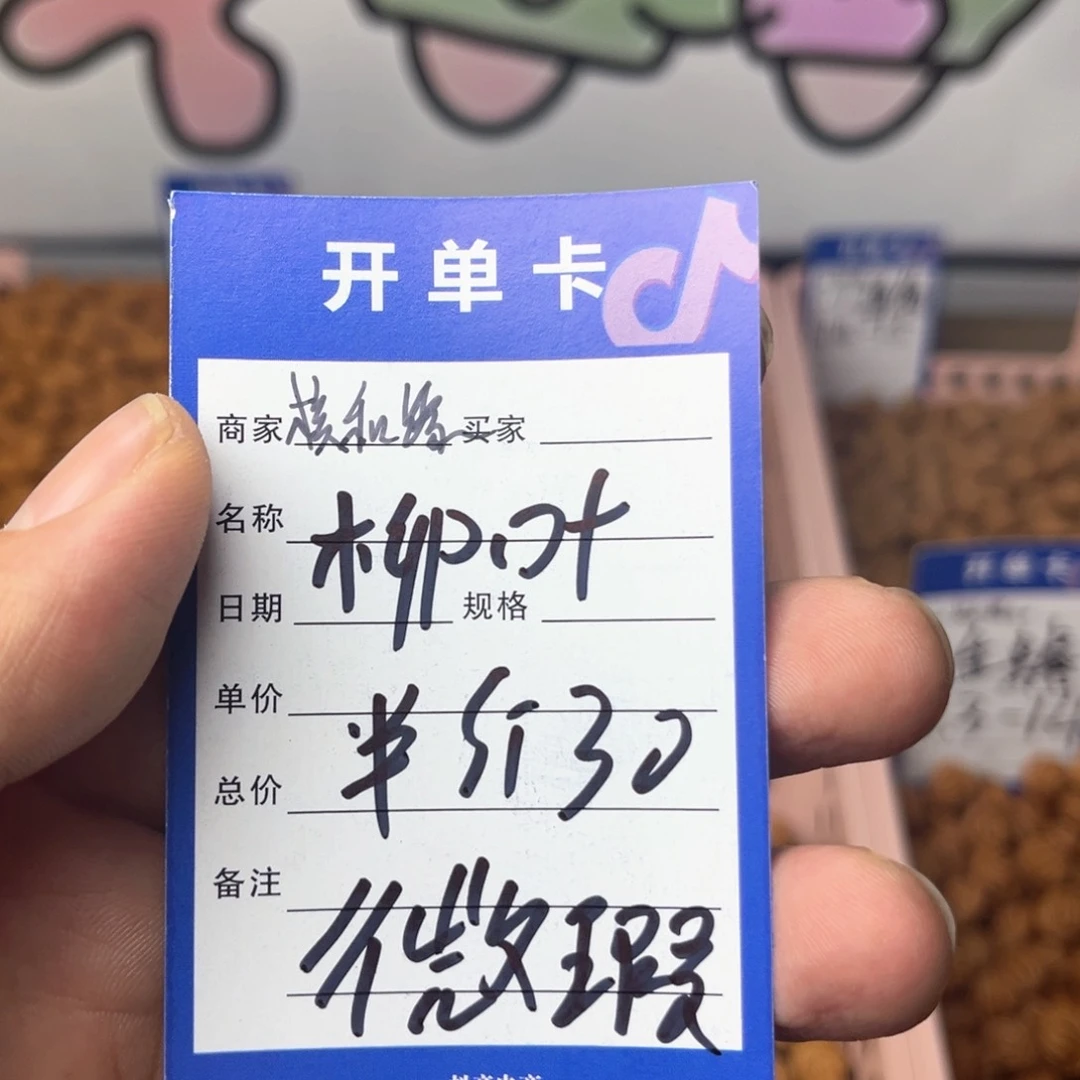 开单卡
商家 核和缘 买家
名称 柳叶
日期 规格
单价 半斤30
总价
备注 微瑕
开单卡